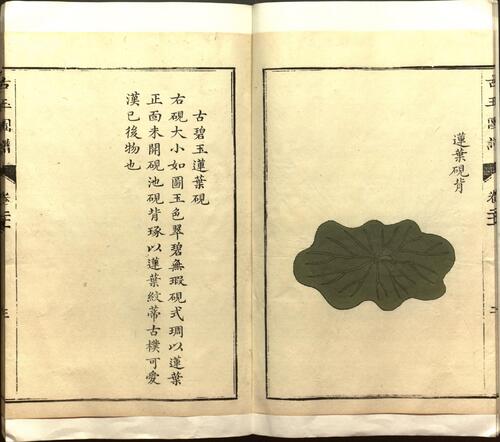 蓮葉硯背
古碧玉蓮葉硯
右硯大小如圖玉色翠碧無瑕硯式琱以蓮葉
正面未開硯池硯背琢以蓮葉紋蒂古樸可愛
漢已後物也
古玉圖譜
古玉圖譜